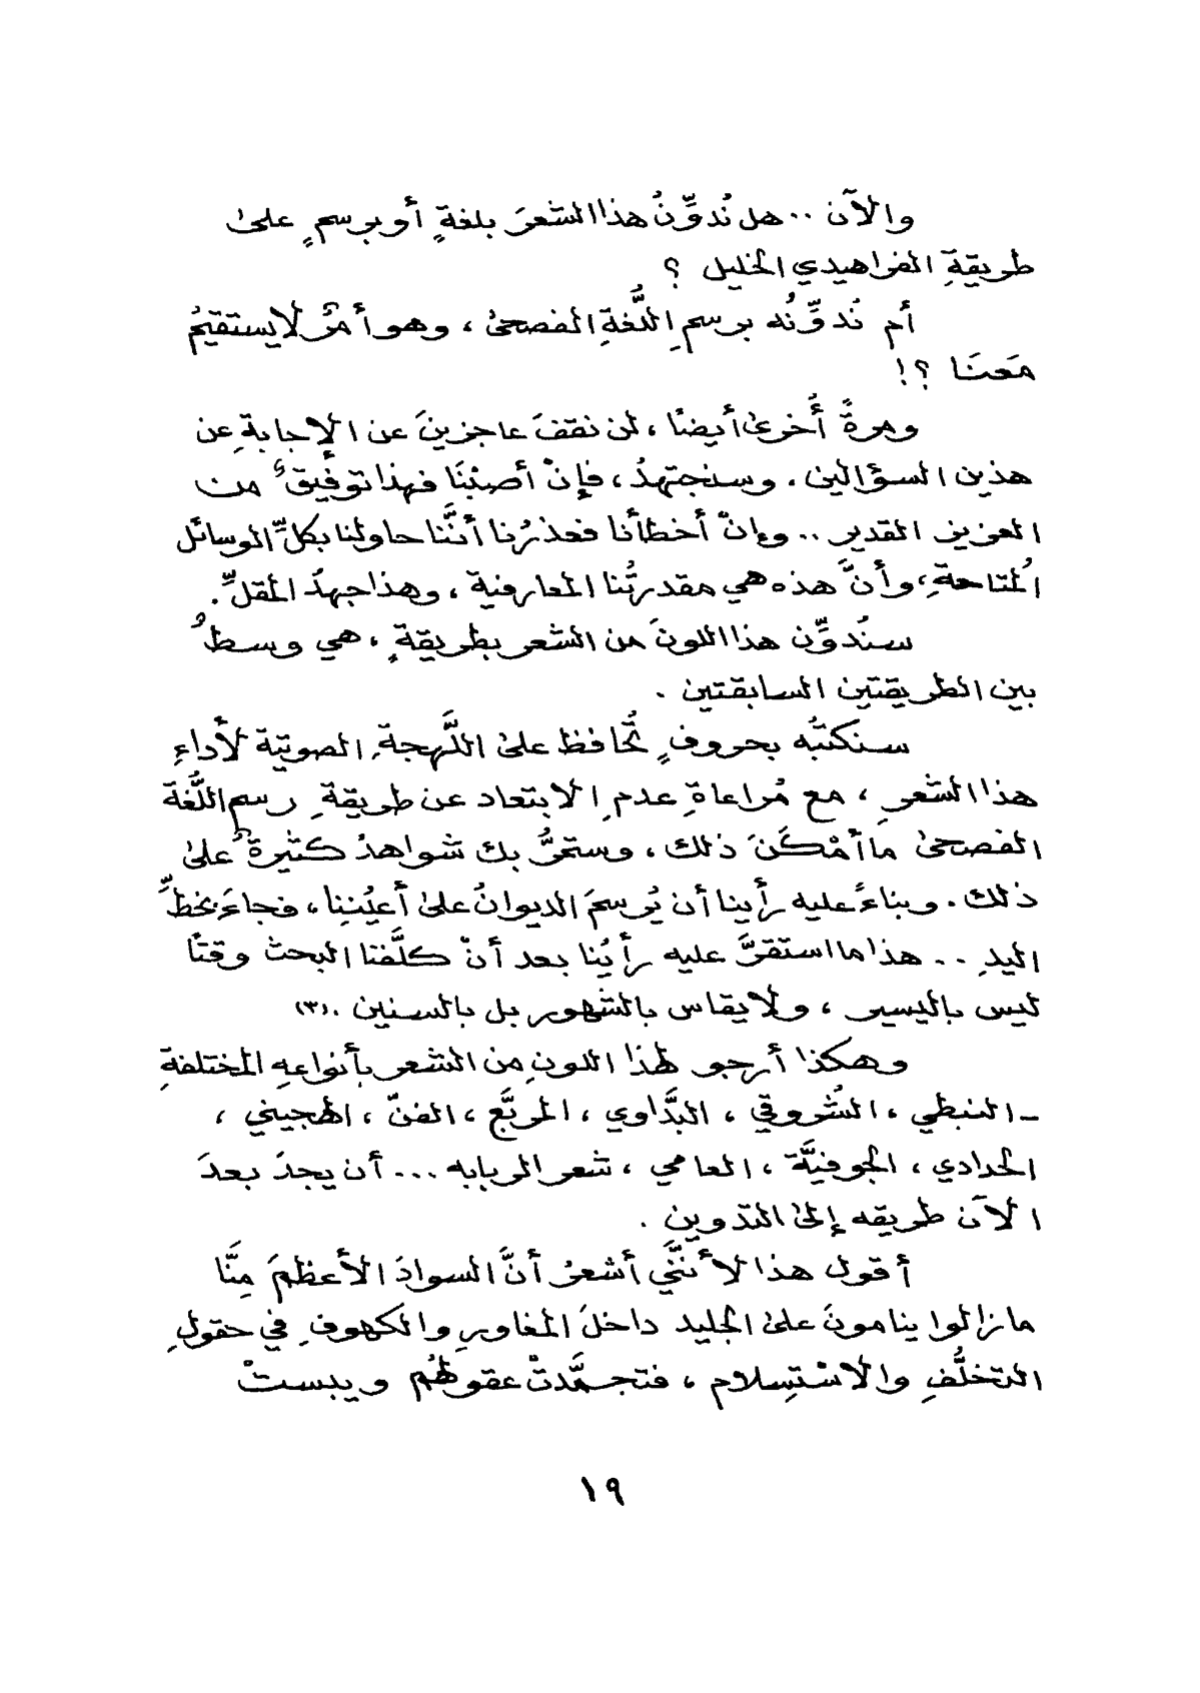 والآن .. هل نُدوِّنُ هذا الشعرَ بلغةٍ أو برسمٍ علىٰ
طريقةِ الفراهيدي الخليل ؟
أم نُدوِّنُه برسمِ اللُّغةِ الفصحىٰ ، وهو أمرٌ لا يستقيمُ
مَعنَا ؟!
ومرةً أُخرىٰ أيضًا ، لن نقفَ عاجزينَ عن الإجابةِ عن
هذين السؤالين . وسنجتهدُ ، فإنْ أصبْنَا فهذا توفيقٌ من
العزيز القدير .. وإنْ أخطأنا فعذرُنا أنَّنا حاولنا بكلِّ الوسائل
المُتاحةِ ، وأنَّ هذه هي مقدرتُنا المعارفية ، وهذا جهدُ المقلِّ .
سنُدوِّن هذا اللونَ من الشعر بطريقةٍ ، هي وسطٌ
بين الطريقتين السابقتين .
سنكتبُه بحروفٍ تُحافظ علىٰ اللَّهجةِ الصوتيّة لأداءِ
هذا الشعرِ ، مع مُراعاةِ عدمِ الابتعاد عن طريقةِ رسم اللُّغة
الفصحىٰ ما أمْكَنَ ذلك ، وستمرُّ بك شواهدُ كثيرةٌ علىٰ
ذلك . وبناءً عليه رأينا أن يُرسمَ الديوانُ علىٰ أعيُننِا ، فجاءَ بخطِّ
اليدِ .. هذا ما استقرَّ عليه رأيُنا بعد أنْ كلَّفنا البحث وقتًا
ليس باليسير ، ولا يقاس بالشهور بل بالسنين .(٣)
وهكذا أرجو لهذا اللونِ من الشعر بأنواعهِ المختلفةِ
- النبطي ، الشُروقي ، البدَّاوي ، المربَّع ، الفنّ ، الهجيني ،
الحدادي ، الجوفيَّة ، العامي ، شعر الربابه ... أن يجدَ بعدَ
الآن طريقه إلىٰ التدوينِ .
أقول هذا لأنَّني أشعرُ أنَّ السوادَ الأعظمَ مِنَّا
ما زالوا ينامونَ علىٰ الجليد داخلَ المغاورِ والكهوفِ في حقولِ
التخلُّفِ والاسْتِسلام ، فتجمَّدتْ عقولهُم ويبستْ
١٩